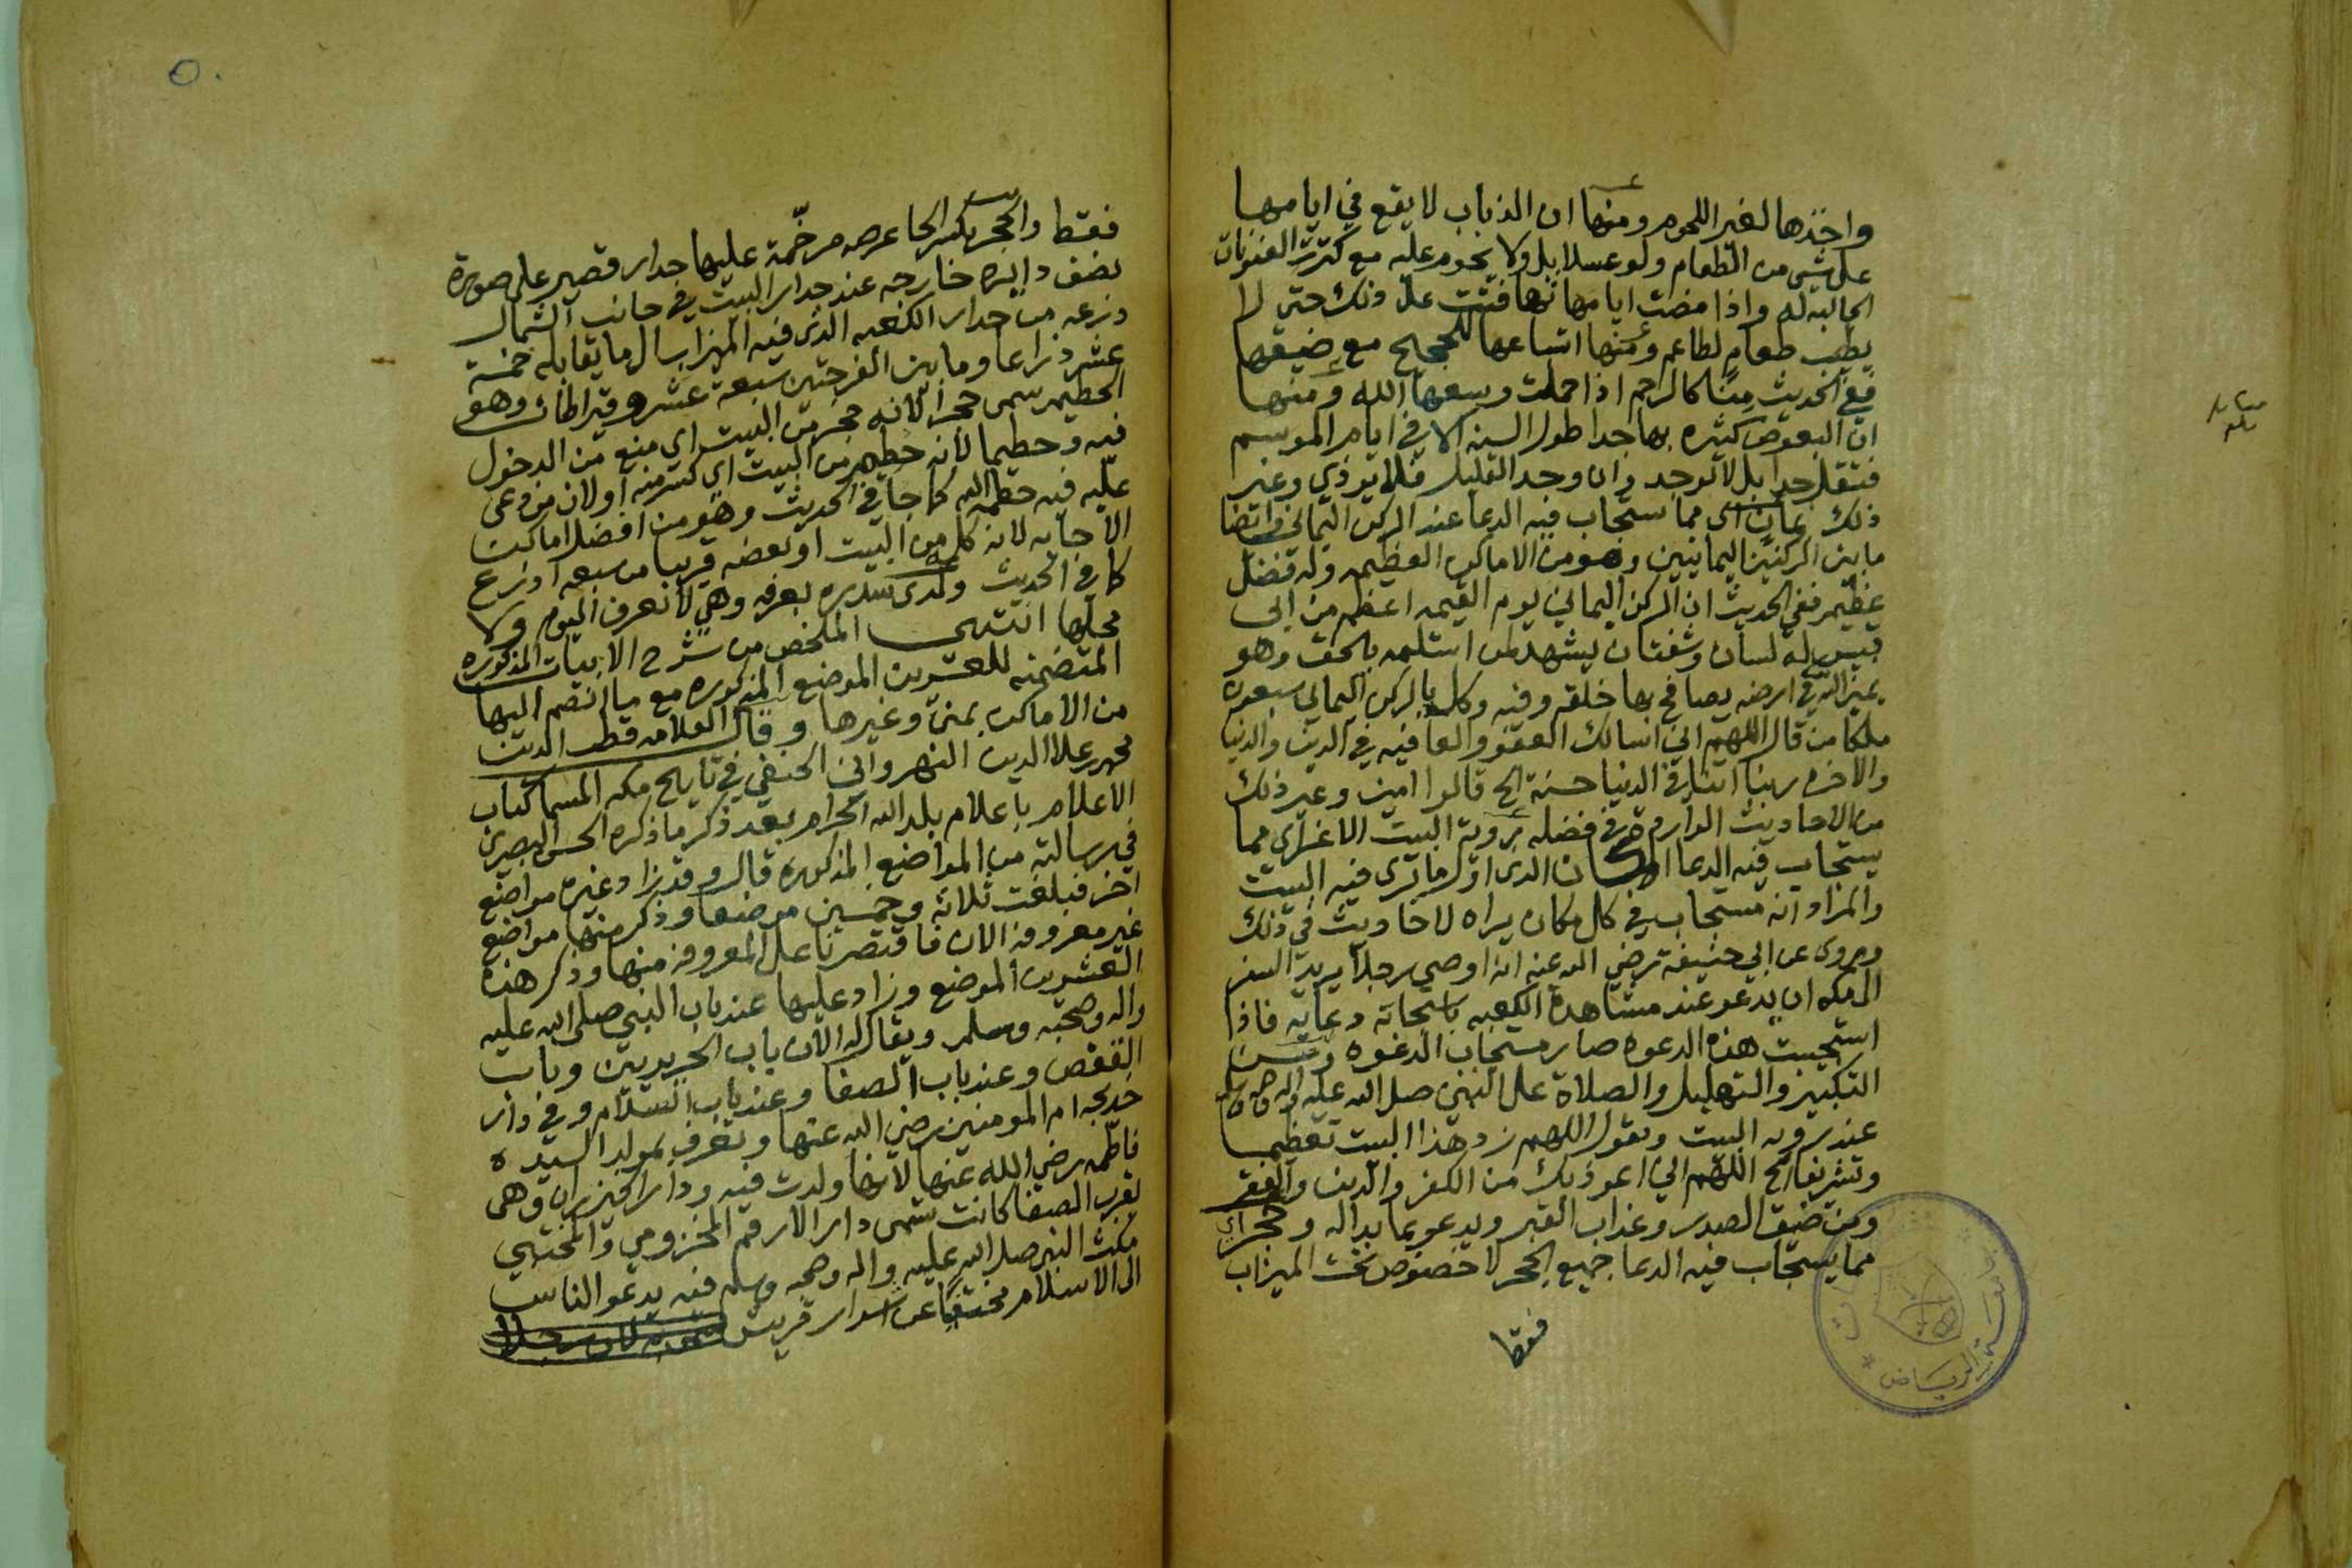 واخذها لغير اللحوم ومنها ان الذباب لا يقع في ايامها
على شي من الطعام ولو عسلا بل ولا يحوم عليه مع كثرت العفونات
الجالبه له واذا مضت ايامها تهافتت على ذلك حتى لا
يطيب طعام لطاعم ومنها اتساعها للحجيج مع ضيقها
ففي الحديث منا كالرحم اذا حملت وسعها الله ومنها
ان البعوض كثيره بها جدا طول السنه الا في ايام الموسم
فتقل جدا بل لا توجد وان وجد القليل فلا يوذي وغير
ذلك يمان اى مما يستجاب فيه الدعا عند الركن اليماني وايضا
ما بين الركنين اليمانيين وهو من الاماكن العظيمه وله فضل
عظيم ففي الحديث ان الركن اليماني يوم القيمه اعظم من ابي
قبيس له لسان وشفتان يشهد لمن استلمه بالحق وهو
يمين الله في ارضه يصافح بها خلقه وفيه وكل بالركن اليماني سبعون
ملكا من قال اللهم اني اسالك العفو والعافيه في الدين والدنيا
والاخره ربنا اتنا في الدنيا حسنة الخ قالوا امين وغير ذلك
من الاحاديث الوارده في فضله بروية البيت الاغر اى مما
يستجاب فيه الدعا المكان الذى اول ما ترى فيه البيت
والمراد انه مستجاب في كل مكان يراه لاحاديث في ذلك
وروى عن ابي حنيفة رضي الله عنه انه اوصى رجلا يريد السفر
الى مكه ان يدعو عند مشاهدة الكعبه باستجابة دعايه فاذا
استجيبت هذه الدعوه صار مستجاب الدعوه ويسن
التكبير والتهليل والصلاة على النبي صلى الله عليه واله وصحبه وسلم
عند روية البيت ويقول اللهم زد هذا البيت تعظيما
وتشريفا الخ اللهم اني اعوذ بك من الكفر والدين والفقر
ومن ضيق الصدر وعذاب القبر ويدعو بما بداله وحجر اى
مما يستجاب فيه الدعا جميع الحجر لا خصوص تحت الميزاب
فقط
فقط والحجر بكسر الحا عرصه مرخّمة عليها جدار قصير على صورة
نصف دايره خارجه عند جدار البيت في جانب الشمال
وذرعه من جدار الكعبه الذى فيه الميزاب الى ما يقابله خمسة
عشر ذراعا وما بين الفرجتين سبعة عشر وقيراطان وهو
الحطيم سمى حجرا لانه حجر من البيت اى منع من الدخول
فيه وحطيما لانه حطيم من البيت اى كسر منه او لان من دعى
عليه فيه حطمه الله كما جا في الحديث وهو من افضل اماكن
الاجابه لانه كله من البيت او بعضه قريبا من سبعه اذرع
كما في الحديث ولدى سدره بعرفه وهي لا تعرف اليوم ولا
محلها انتهى الملخص من شرح الابيات المذكوره
المتضمنه للعشرين الموضع المذكوره مع ما انضم اليها
من الاماكن بمنى وغيرها وقال العلامه قطب الدين
محمد بن علا الدين النهرواني الحنفي في تاريخ مكه المسما كتاب
الاعلام باعلام بلد الله الحرام بعد ذكر ما ذكره الحسن البصرى
في رسالته من المواضع المذكوره قال وقد زاد غيره مواضع
اخر فبلغت ثلاثة وخمسين موضعا وذكر منها مواضع
غير معروفه الان فاقتصرنا على المعروفه منها وذكر هذه
العشرين الموضع وزاد عليها عند باب النبي صلى الله عليه
واله وصحبه وسلم ويقال له الان باب الحريريين وباب
القفص وعند باب الصفا وعند باب السلام وفي دار
خديجه ام المومنين رضي الله عنها وتعرف بمولد السيده
فاطمه رضي الله عنها لانها ولدت فيه ودار الخيزران وهي
بقرب الصفا كانت تسمى دار الارقم المخزومي والمختبي
مكث النبي صلى الله عليه واله وصحبه وسلم فيه يدعو الناس
الى الاسلام مختفيا عن اشرار قريش